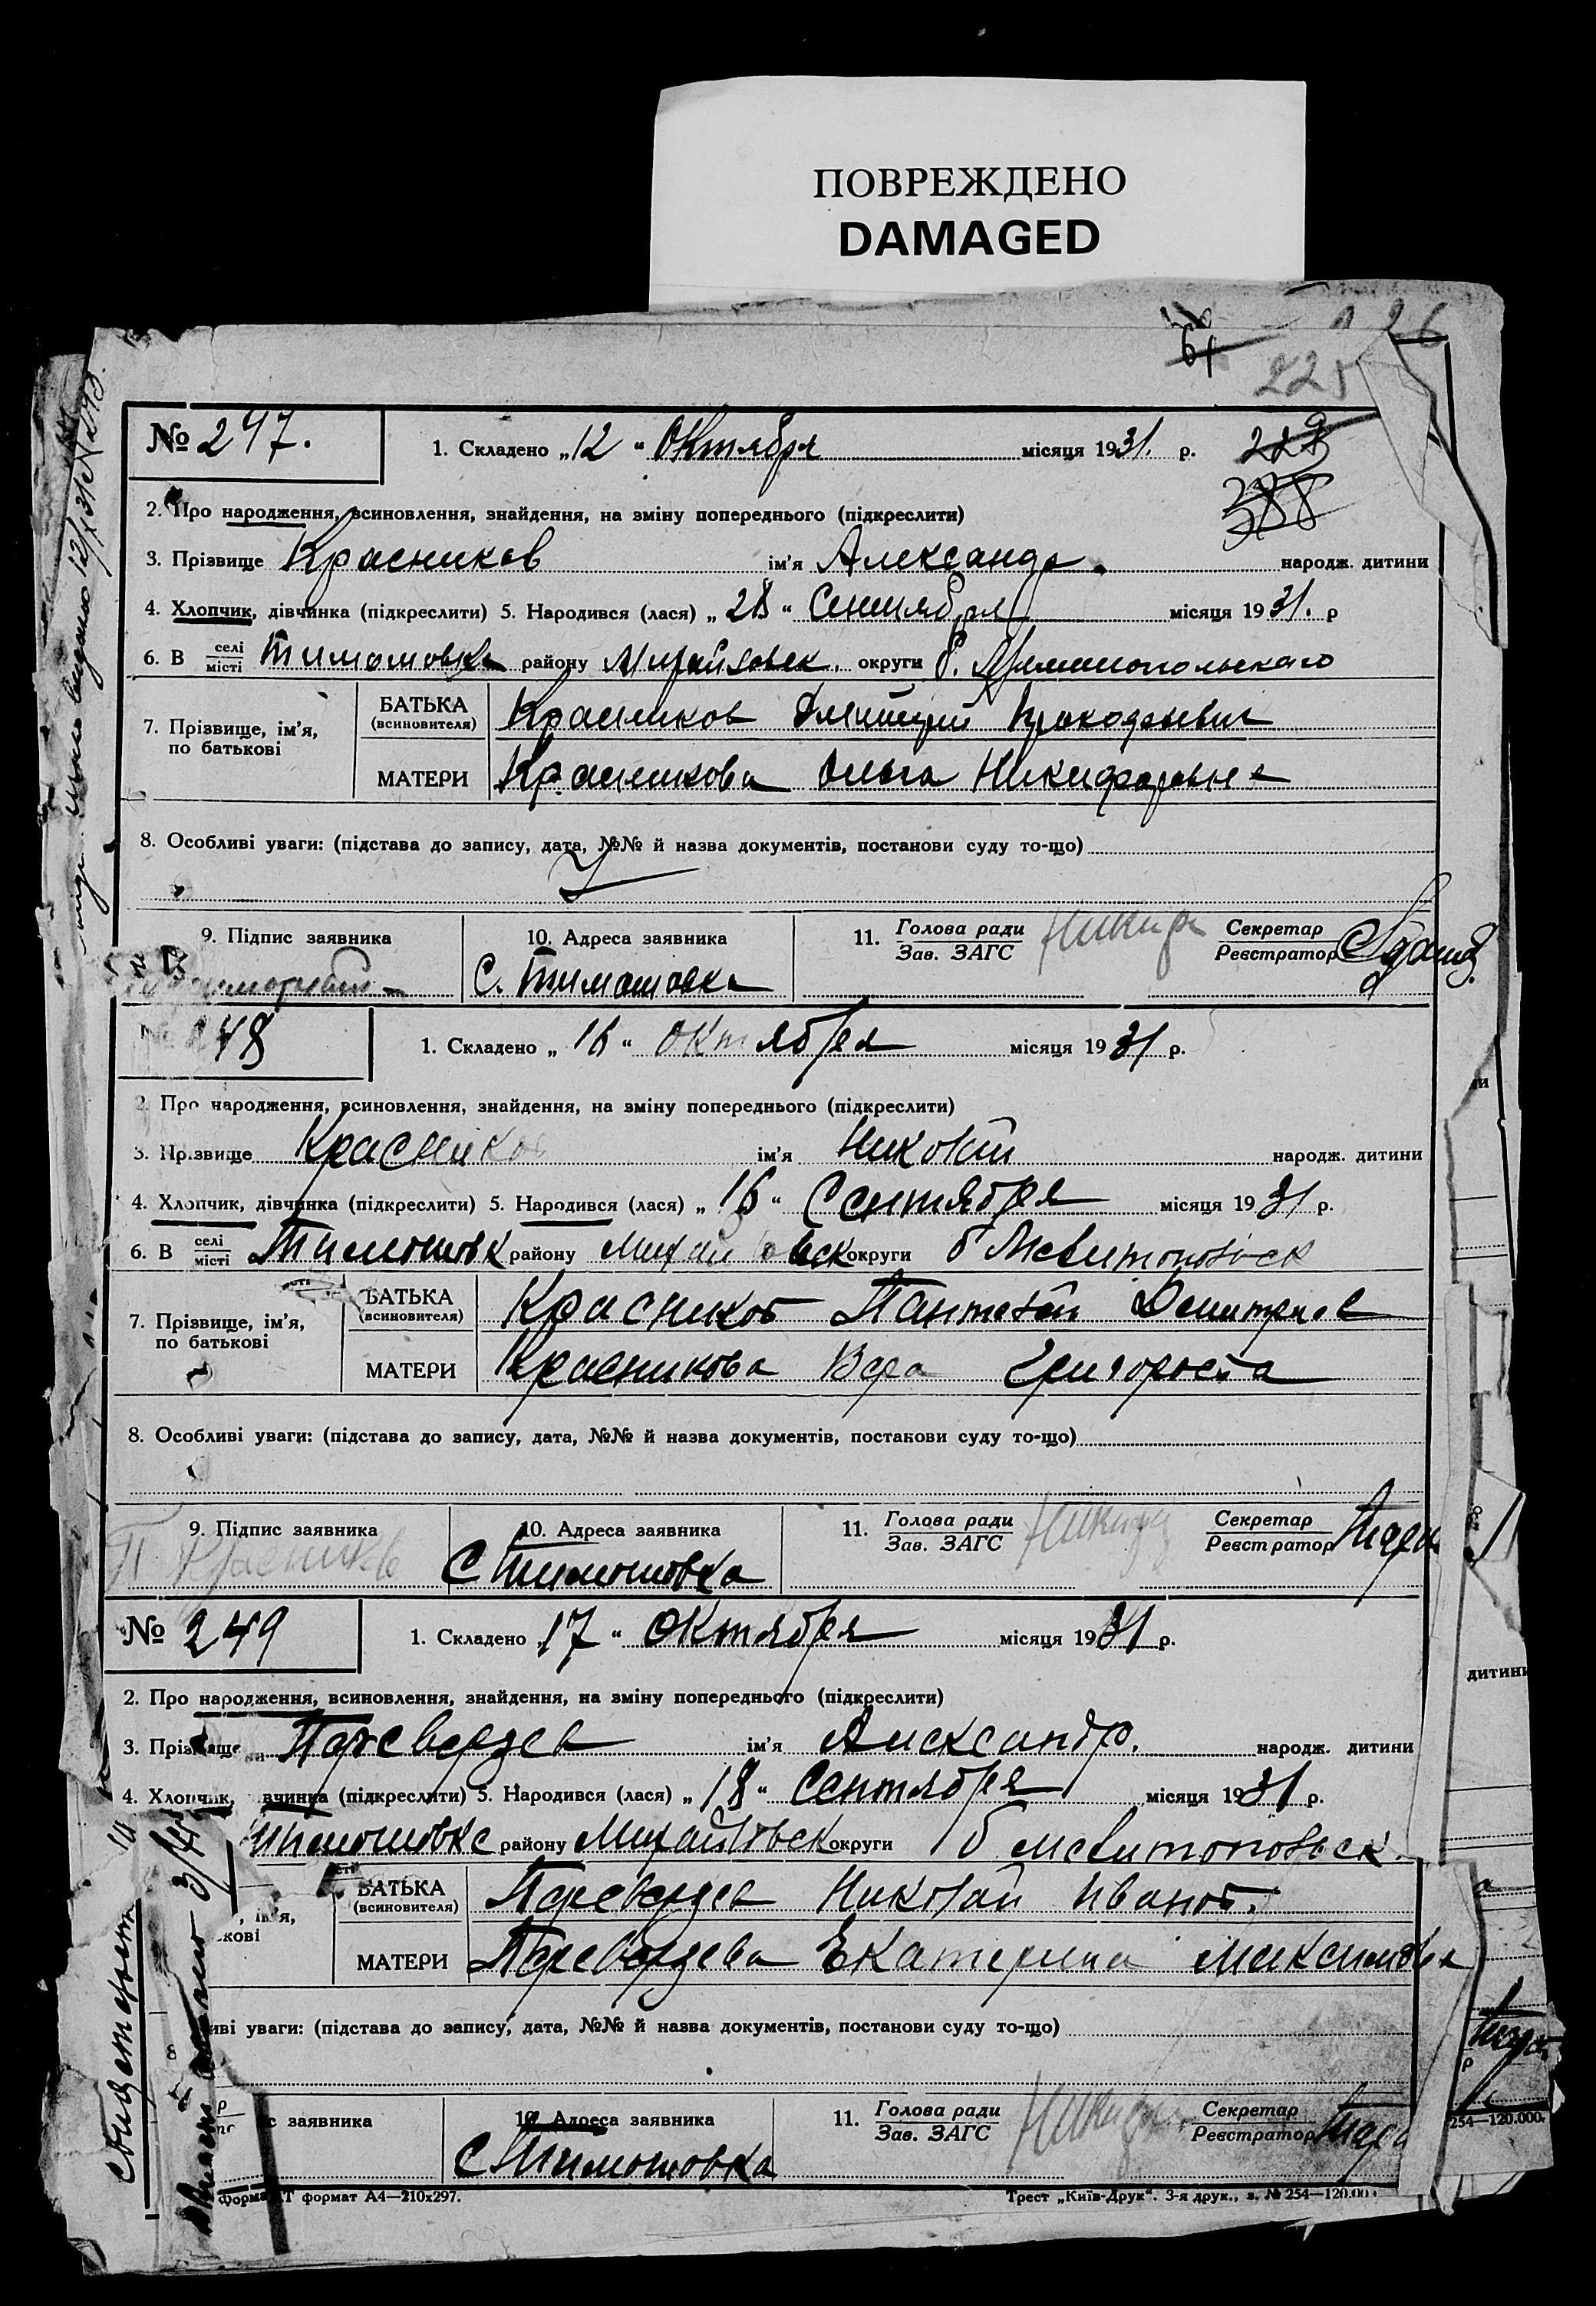 ПОВРЕЖДЕНО
DAMAGED
61
225
№ 247.
1. Складено „12“ Октября місяця 1931. р.
2. Про народження, всиновлення, знайдення, на зміну попереднього (підкреслити)
3. Прізвище Красников ім’я Александр. народж. дитини
4. Хлопчик, дівчинка (підкреслити) 5. Народився (лася) „28“ Сентября місяця 1931. р
6. В селі місті Тимошовка району Михайловск. округи б. Мелитопольскаго
7. Прізвище, ім’я, по батькові
БАТЬКА (всиновителя) Красников Дмитрий Прокофьевич
МАТЕРИ Красникова Ольга Никифоровна
8. Особливі уваги: (підстава до запису, дата, №№ й назва документів, постанови суду то-що)
9. Підпис заявника
10. Адреса заявника
С. Тимошовка
11. Голова ради Зав. ЗАГС
Секретар Реєстратор
248
1. Складено „16“ Октября місяця 1931 р.
2. Про народження, всиновлення, знайдення, на зміну попереднього (підкреслити)
3. Прізвище Красников ім’я Николай народж. дитини
4. Хлопчик, дівчинка (підкреслити) 5. Народився (лася) „16“ Сентября місяця 1931 р.
6. В селі місті Тимошовк району Михайловск округи б Мелитопольск
7. Прізвище, ім’я, по батькові
БАТЬКА (всиновителя) Красников Пантелей Дмитриев
МАТЕРИ Красникова Вера Григоровна
8. Особливі уваги: (підстава до запису, дата, №№ й назва документів, постанови суду то-що)
9. Підпис заявника
П Красников
10. Адреса заявника
С Тимошовка
11. Голова ради Зав. ЗАГС
Секретар Реєстратор
№ 249
1. Складено „17“ Октября місяця 1931 р.
2. Про народження, всиновлення, знайдення, на зміну попереднього (підкреслити)
3. Переверзев ім’я Александр. народж. дитини
4. Хлопчик, вчинка (підкреслити) 5. Народився (лася) „18“ Сентября місяця 1931 р.
Тимошовке району Михайловск округи б Мелитопольск
БАТЬКА (всиновителя) Переверзев Николай Иванов.
МАТЕРИ Переверзева Екатерина Максимовна
иві уваги: (підстава до запису, дата, №№ й назва документів, постанови суду то-що)
с заявника
10. Адреса заявника
С Тимошовка
11. Голова ради Зав. ЗАГС
Секретар Реєстратор
формат А4—210х297.
Трест „Київ-Друк“. 3-я друк., з. № 254—120.00
дитини
254—120.000.